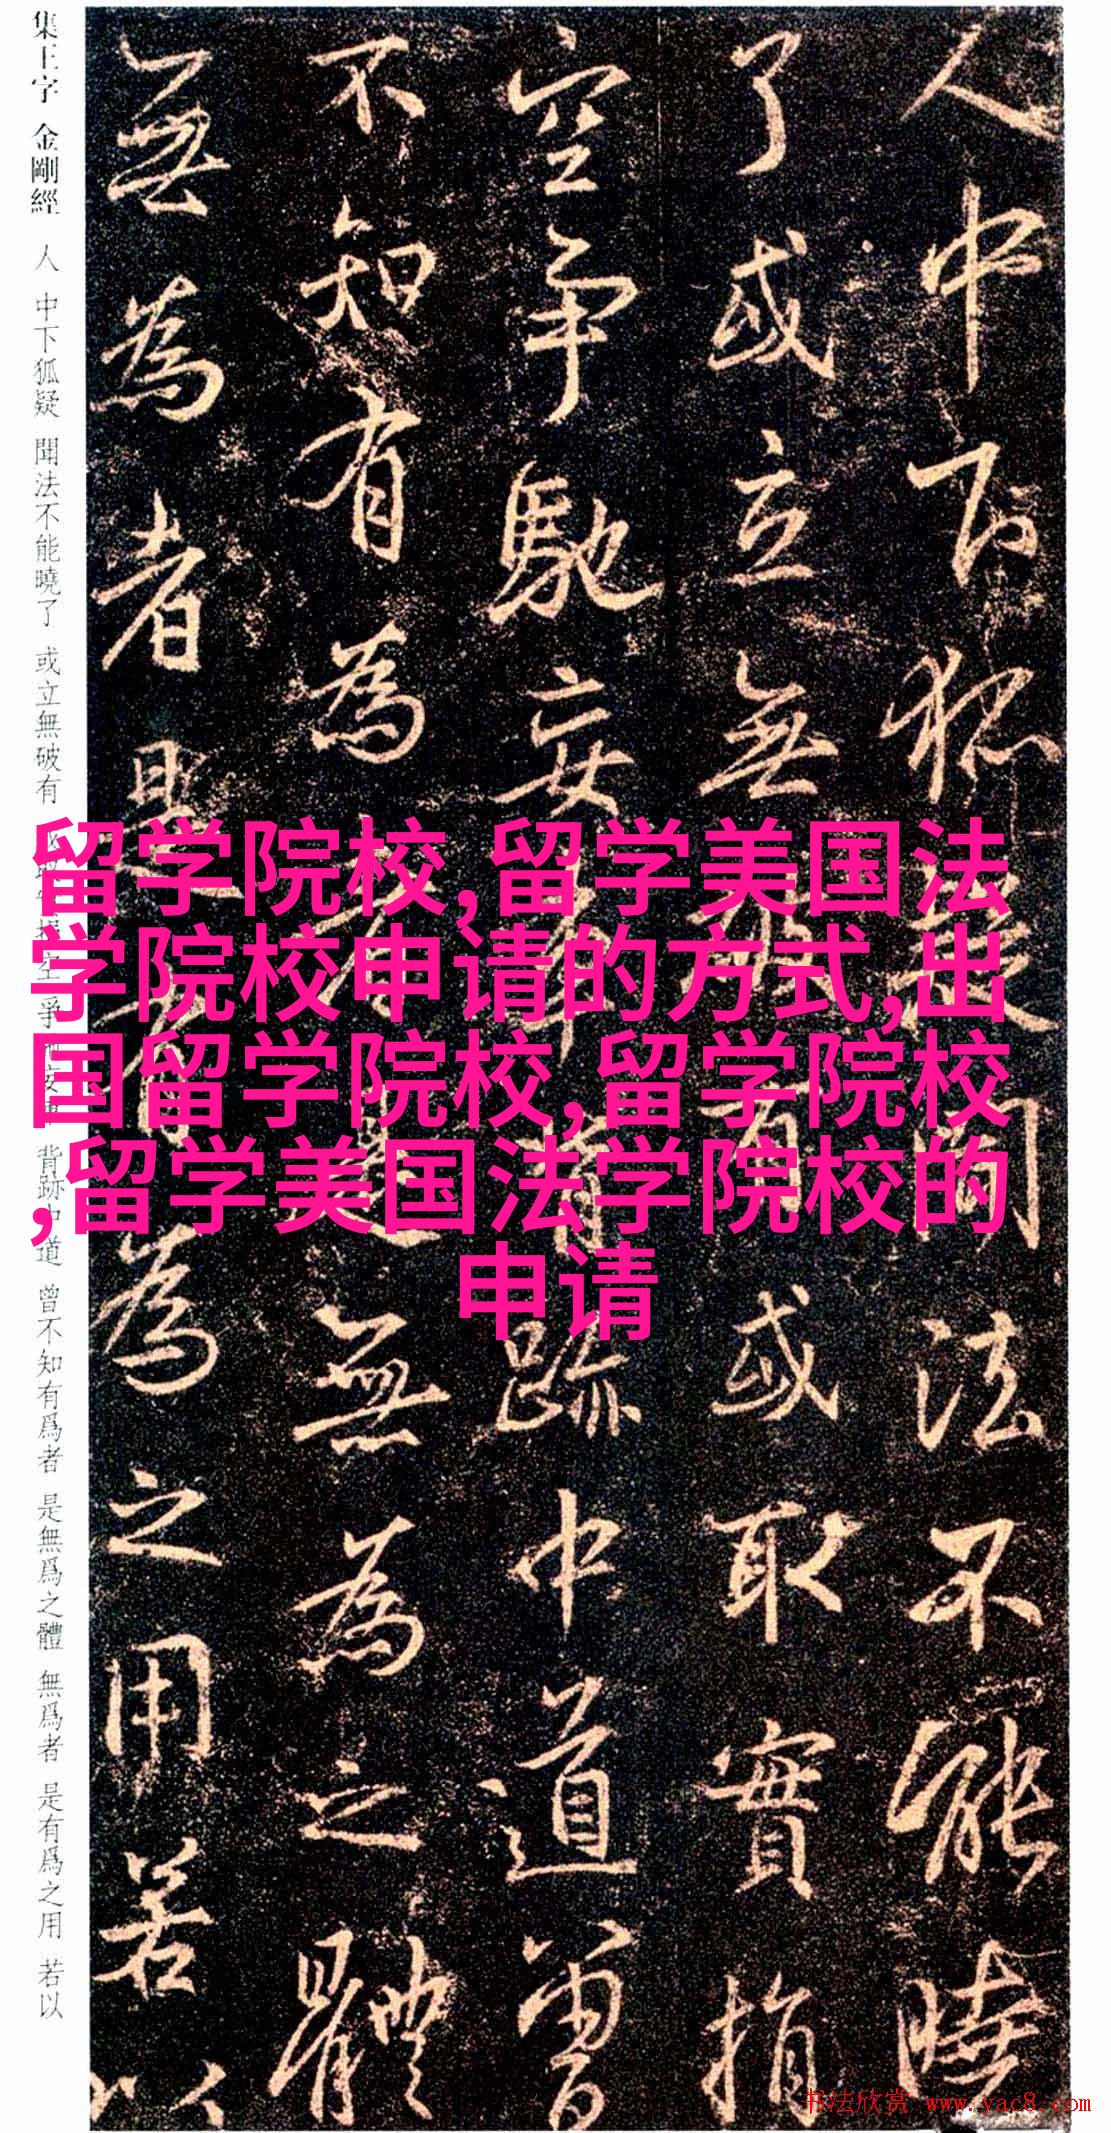 集王字 金剛經 人 中下狐疑 聞法不能曉了 或立無破有 空爭 背跡中道 曾不知有爲者 是無爲之體 無爲者 是有爲之用 若以
人中下狐疑聞法不能曉
了或立無破有或取實捐
空爭馳妄事背跡中道曾
不知有為者是無為之體
無為者是有為之用若以
留学院校,留学美国法
学院校申请的方式,出
国留学院校,留学院校
,留学美国法学院校的
申请
书法欣赏 www.yac8.com